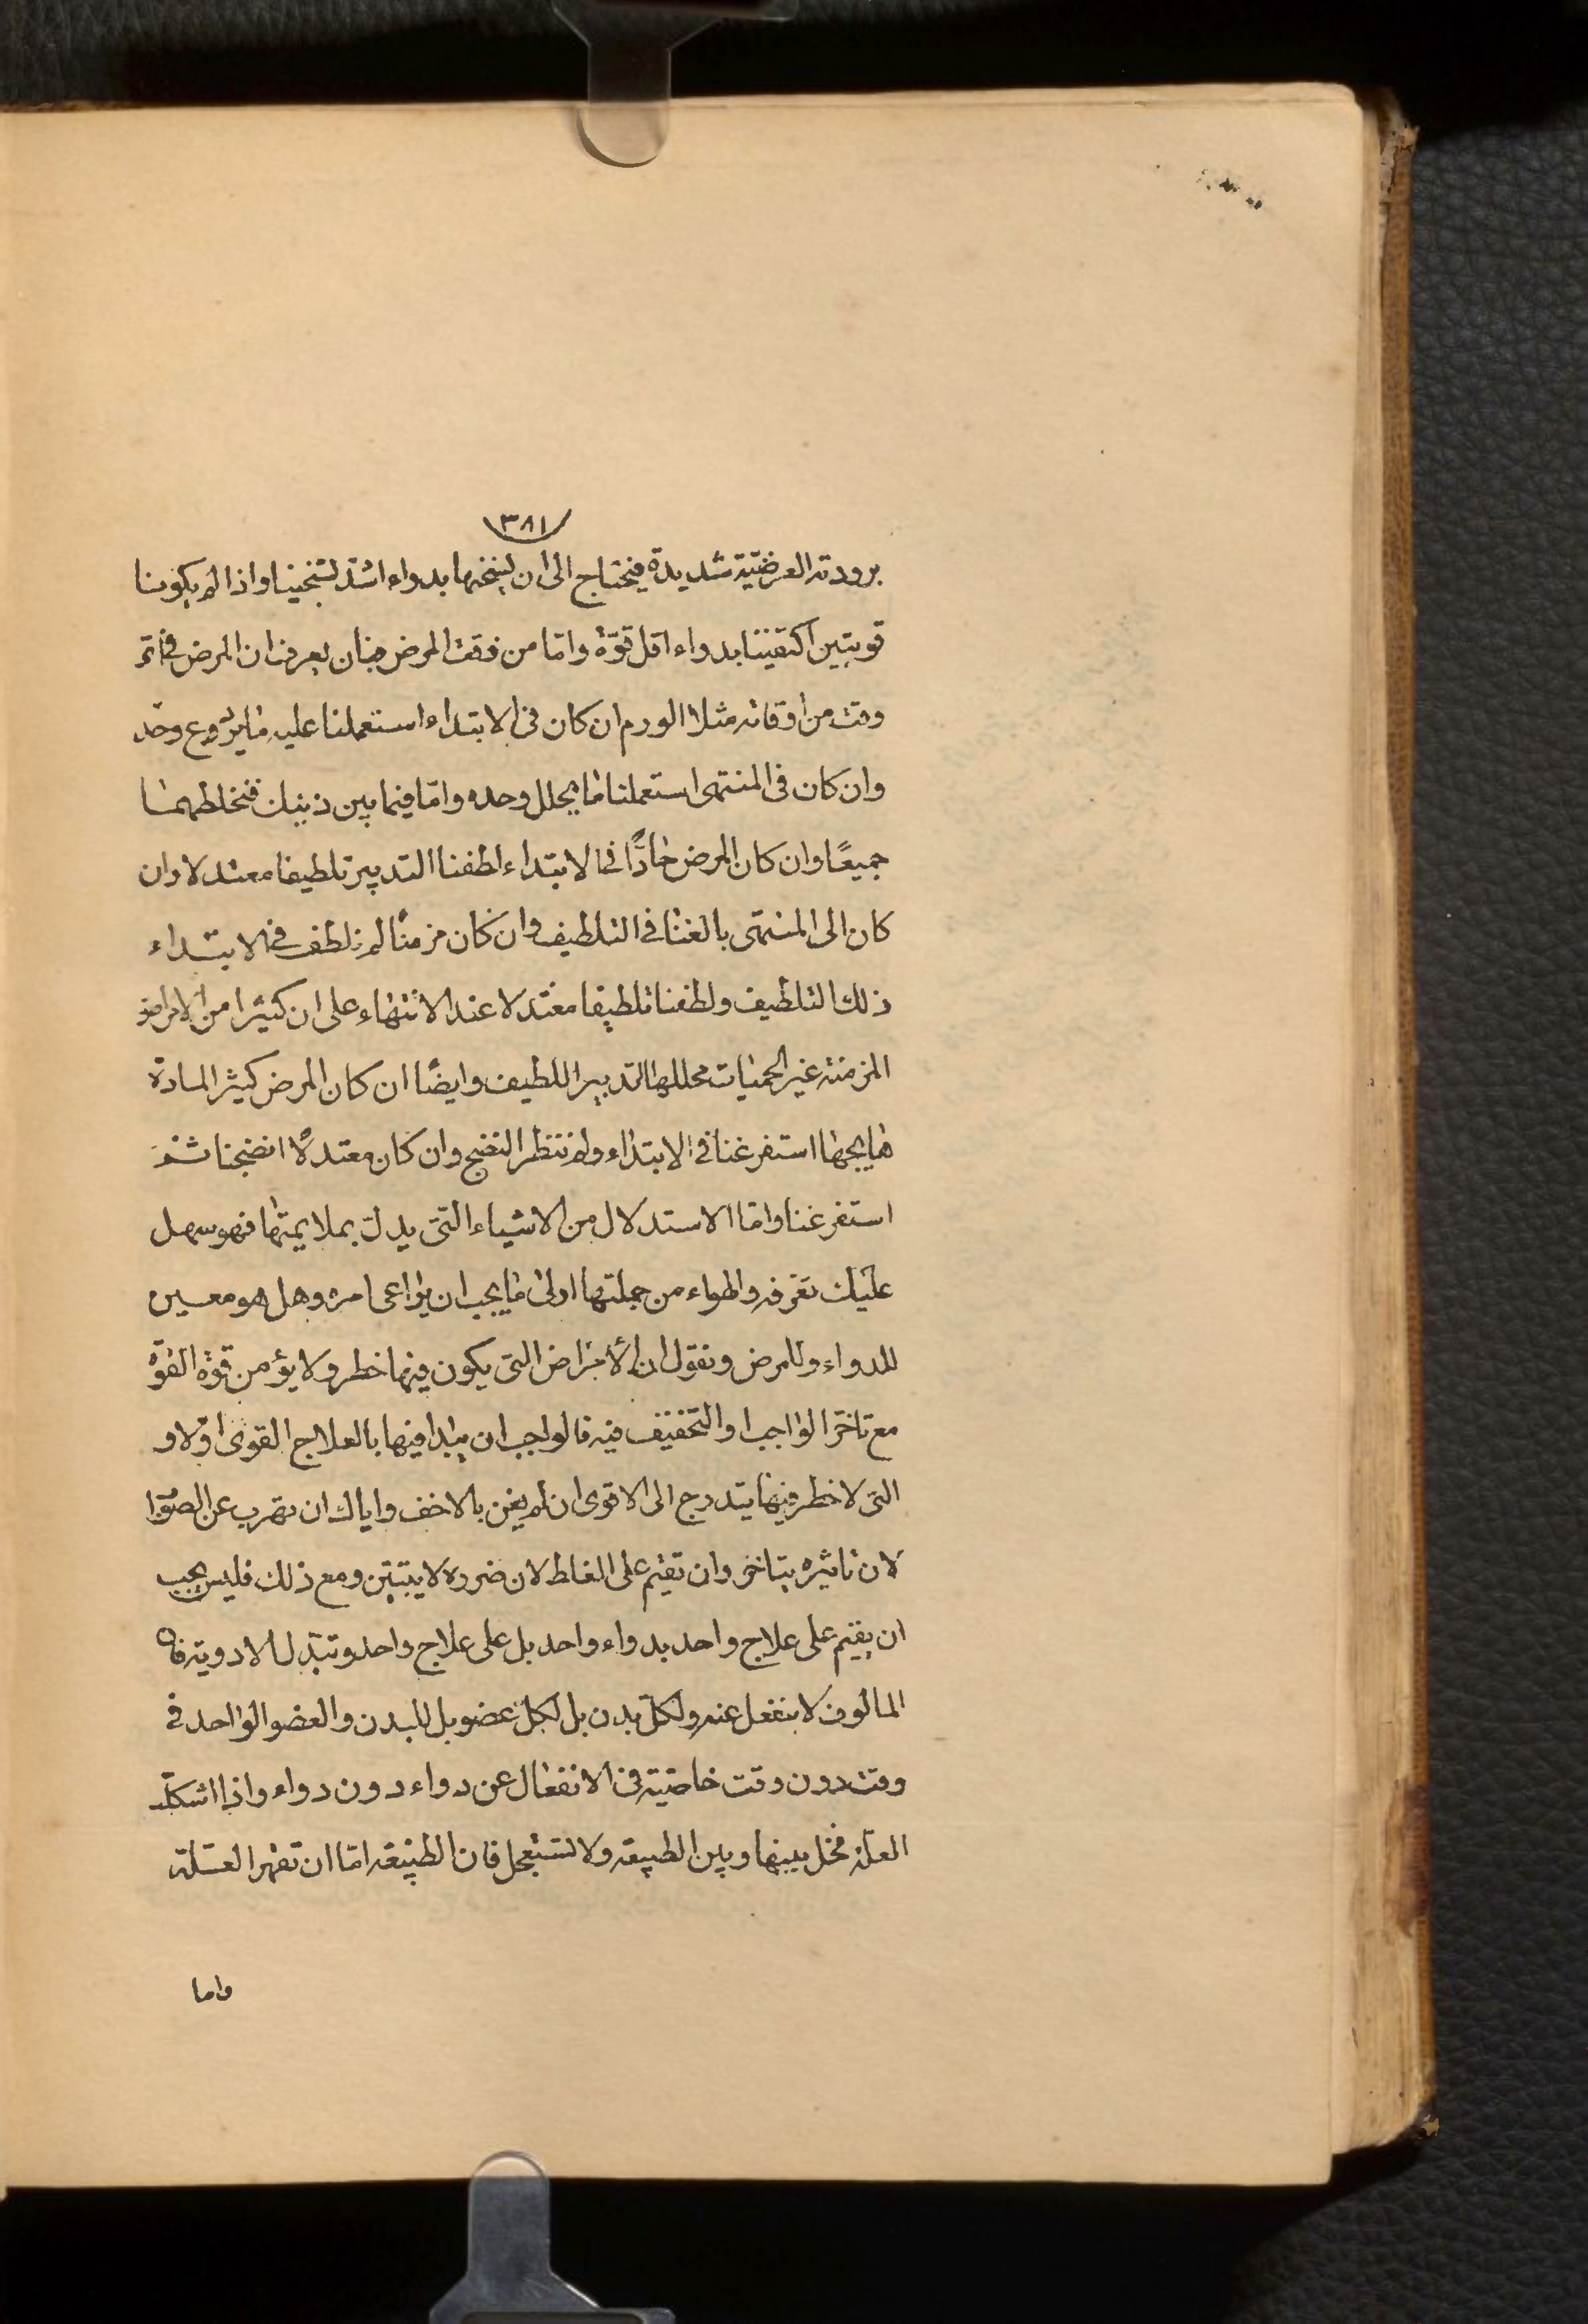 ٣٨١
برودته العرضيّة شديدة فيحتاج الى ان يسخنها بدواء اشدّ تسخينا واذا لم يكونا
قويتين اكتفينا بدواء اقل قوّة وامّا من وقت المرض فبان يعرف ان المرض فى اىّ
وقت من اوقاته مثلا الورم ان كان فى الابتداء استعملنا عليه ما يردع وحده
وان كان فى المنتهى استعملنا ما يحلل وحده وامّا فيما بين ذينك فنخلطهما
جميعًا وان كان المرض حادًّا فى الابتداء لطفنا التدبير تلطيفا معتدلا وان
كان الى المنتهى بالغنا فى التلطيف وان كان مزمنًا لم نلطف فى الابتداء
ذلك التلطيف ولطفنا تلطيفا معتدلا عند الانتهاء على ان كثيرا من الامراض
المزمنة غير الحميات محللها التدبير اللطيف وايضًا ان كان المرض كثير المادة
هايجها استفرغنا فى الابتداء ولم ننتظر النضج وان كان معتدلًا انضجنا ثم
استفرغنا وامّا الاستدلال من الاشياء التى يدلّ بملايمتها فهو سهل
عليك تعرفه والهواء من جملتها اولى ما يجب ان يراعى امره وهل هو معين
للدواء وللمرض ونقول ان الأمراض التى يكون فيها خطر ولا يؤمن قوة القوّة
مع تاخر الواجب او التخفيف فيه فالواجب ان يبدا فيها بالعلاج القوى اوّلا و
التى لا خطر فيها يتدرج الى الاقوى ان لم يغن بالاخف واياك ان تهرب عن الصوّا
لان تاثيره يتاخر وان تقيم على الغلط لان ضرره لا يتبين ومع ذلك فليس يجب
ان يقيم على علاج واحد بدواء واحد بل على علاج واحد وتبدّل الادوية فان
المالوف لا ينفعل عنه ولكلّ بدن بل لكلّ عضو بل للبدن والعضو الواحد فى
وقت دون وقت خاصيّة فى الانفعال عن دواء دون دواء واذا اشكلت
العلّة فخلّ بينها وبين الطبيعة ولا تستعجل فان الطبيعة امّا ان تقهر العلّة
واما